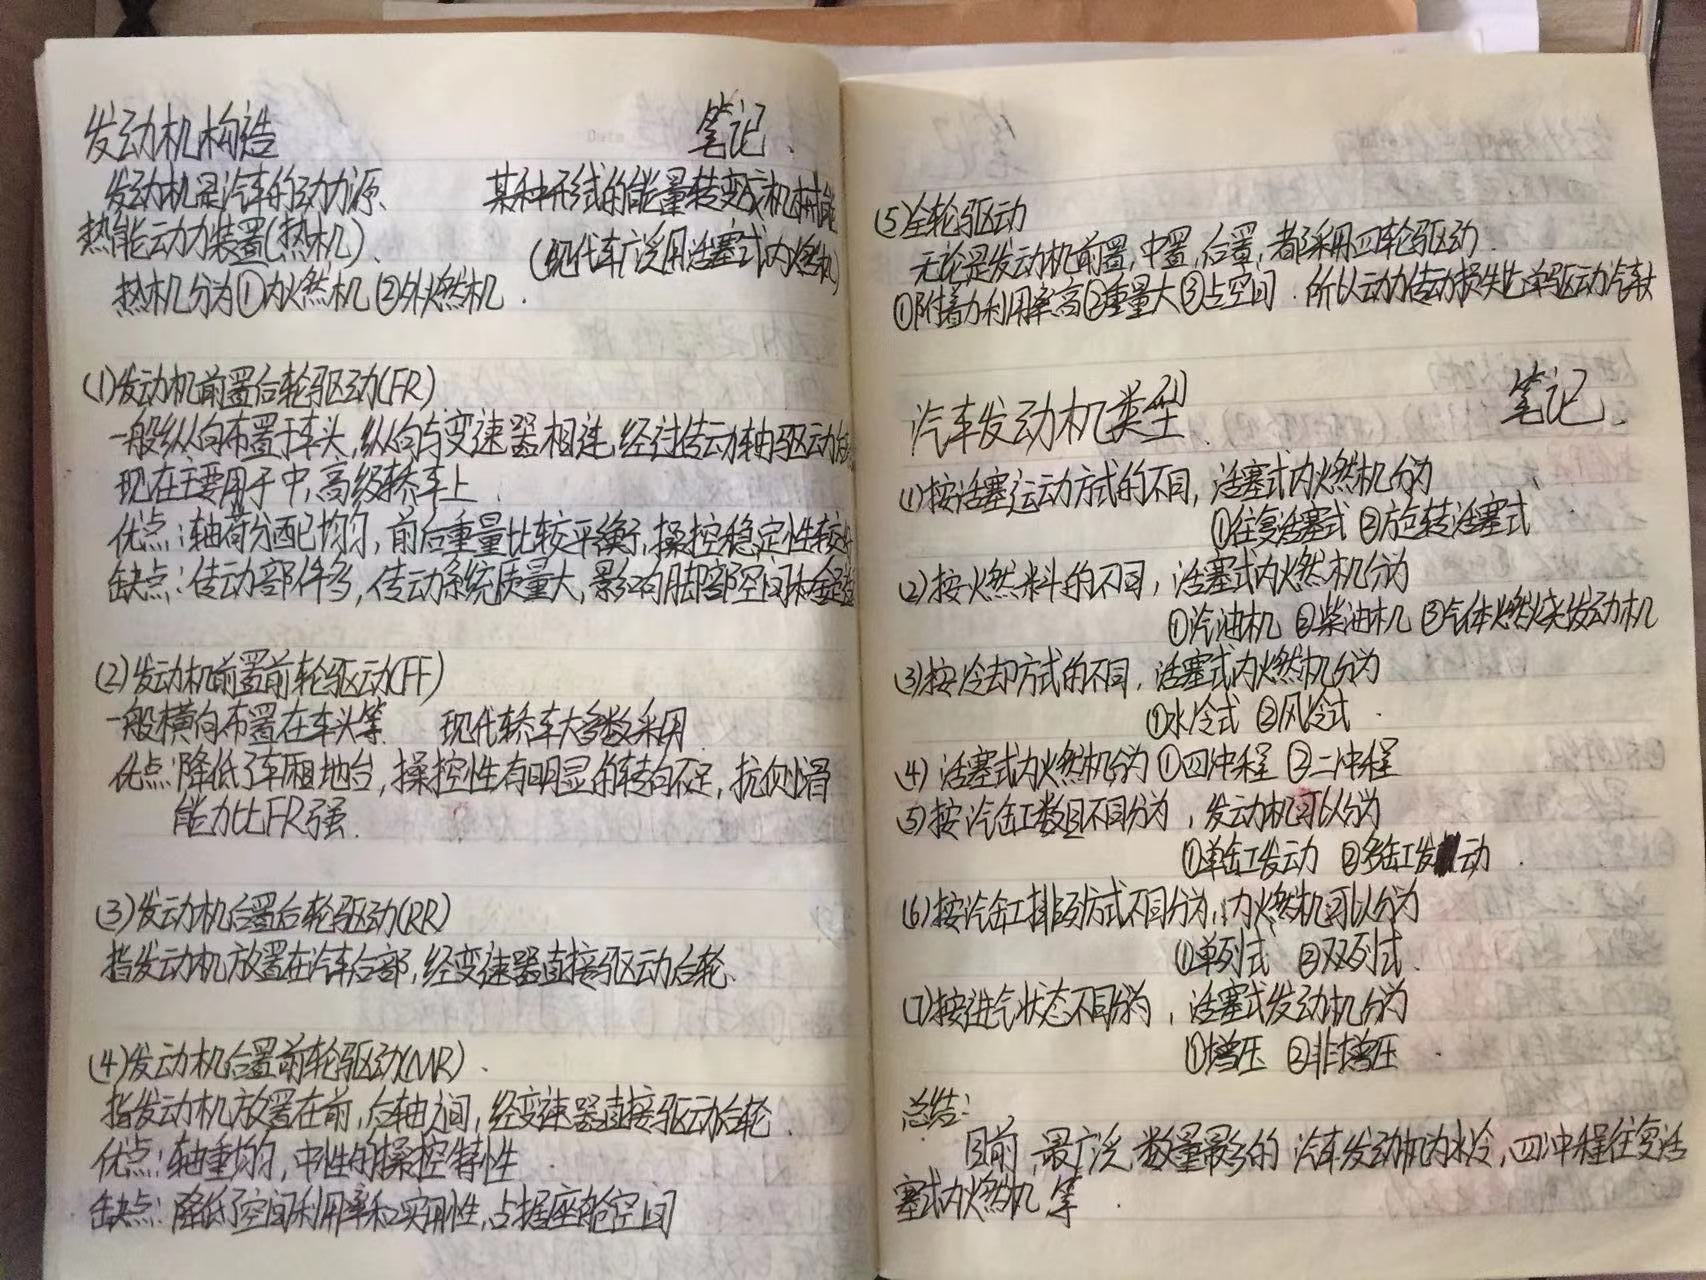 发动机构造 笔记.
发动机是汽车的动力源、 某种形式的能量转变成机械能
热能动力装置(热机). (现代车广泛用活塞式内燃机)
热机分为①内燃机②外燃机.
(1)发动机前置后轮驱动(FR)
一般纵向布置于车头,纵向与变速器相连,经过传动轴驱动后
现在主要用于中,高级轿车上.
优点:轴荷分配均匀,前后重量比较平衡,操控稳定性较好
缺点:传动部件多,传动系统质量大,影响脚部空间
(2)发动机前置前轮驱动(FF)
一般横向布置在车头等. 现代轿车大多数采用.
优点:降低了车厢地台,操控性有明显的转向不足,抗侧滑
能力比FR强.
(3)发动机后置后轮驱动(RR)
指发动机放置在汽车后部,经变速器直接驱动后轮.
(4)发动机后置前轮驱动(MR).
指发动机放置在前,后轴之间,经变速器直接驱动后轮.
优点:轴重均匀,中性的操控特性.
缺点:降低了空间利用率和实用性,占据座舱空间
(5)全轮驱动
无论是发动机前置,中置,后置,都采用四轮驱动.
①附着力利用率高②重量大③占空间.所以动力传动损失比单驱动汽车大
汽车发动机类型. 笔记.
(1)按活塞运动方式的不同,活塞式内燃机分为
①往复活塞式 ②旋转活塞式
(2)按燃料的不同,活塞式内燃机分为
①汽油机 ②柴油机 ③气体燃发动机
(3)按冷却方式的不同,活塞式内燃机分为
①水冷式 ②风冷式.
(4)活塞式内燃机分为①四冲程 ②二冲程
(5)按汽缸数目不同分为,发动机可以分为
①单缸发动 ②多缸发动.
(6)按汽缸排列方式不同分为,内燃机可以分为
①单列式 ②双列式.
(7)按进气状态不同分为,活塞式发动机分为
①增压 ②非增压.
总结:
目前,最广泛、数量最多的汽车发动机为水冷,四冲程往复活
塞式内燃机等.